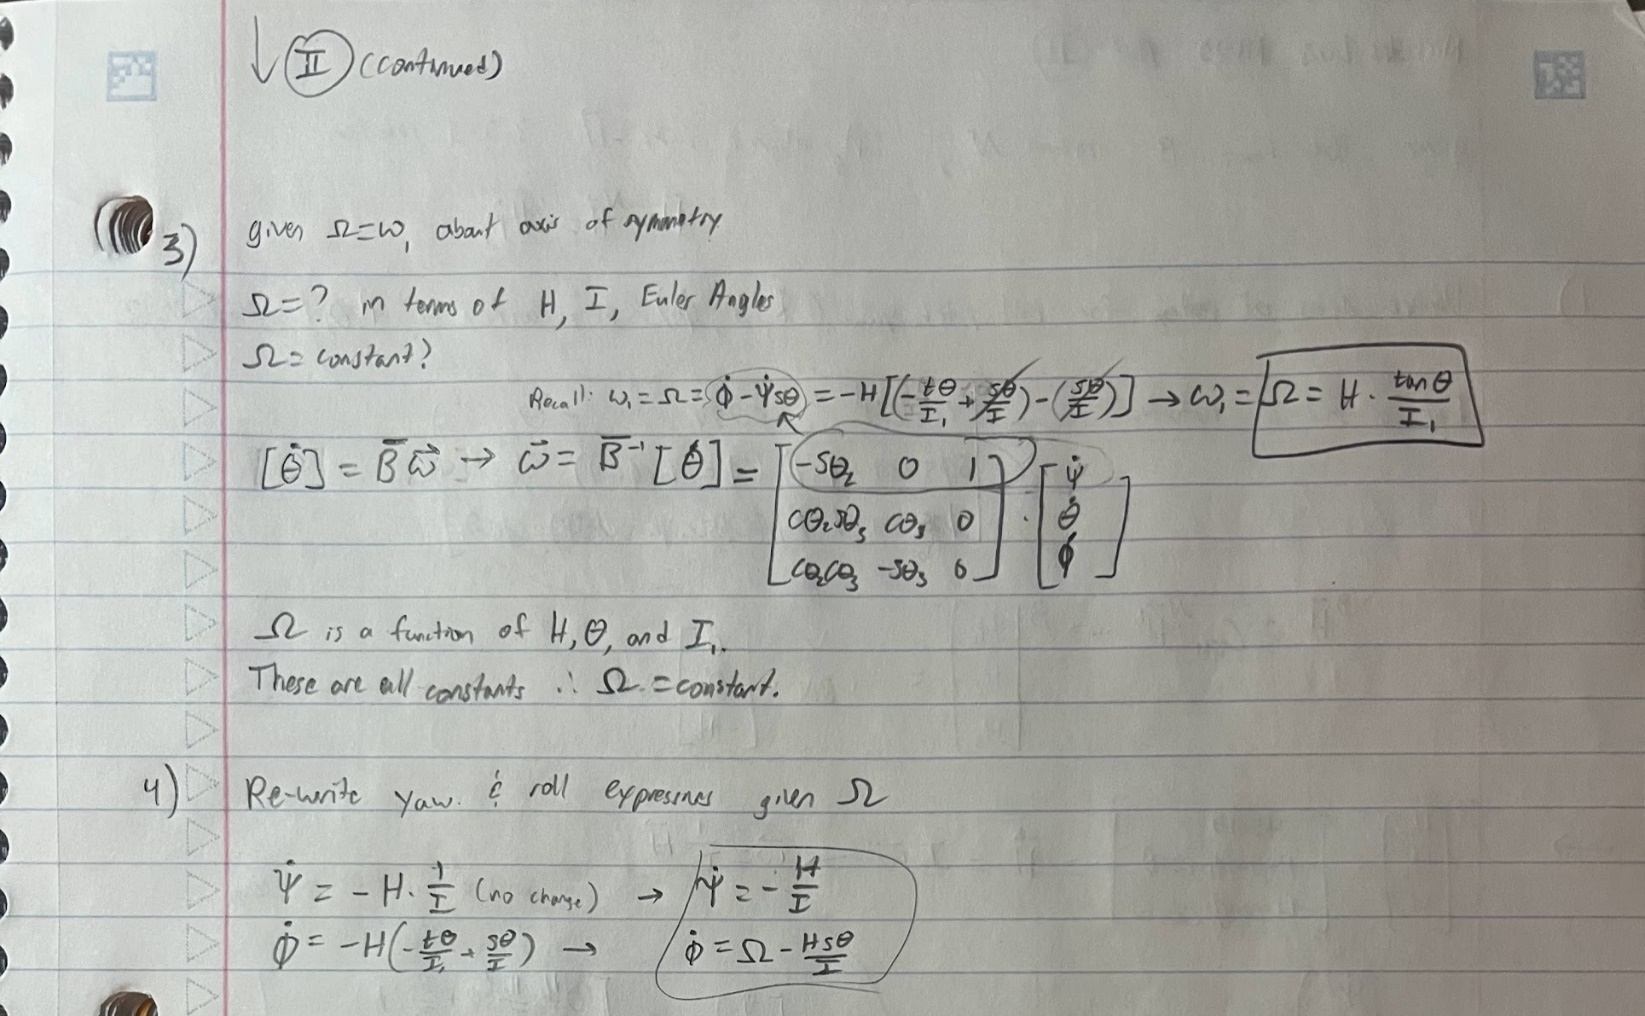 ↓ II (continued)
3) given Ω=ω₁ about axis of symmetry
Ω=? in terms of H, I, Euler Angles
Ω= constant?
Recall: ω₁ = Ω = φ̇ - ψ̇sθ = -H[(-tθ/I₁ + sθ/I) - (sθ/I)] → ω₁ = Ω = H · tanθ/I₁
[θ̇] = B̄ω⃗ → ω⃗ = B̄⁻¹[θ̇] = [-sθ₂ 0 1; cθ₂sθ₃ cθ₃ 0; cθ₂cθ₃ -sθ₃ 0] · [ψ̇; θ̇; φ̇]
Ω is a function of H, θ, and I₁.
These are all constants ∴ Ω = constant.
4) Re-write yaw & roll given Ω
ψ̇ = -H · 1/I (no change) → ψ̇ = -H/I
φ̇ = -H(-tθ/I₁ + sθ/I) → φ̇ = Ω - Hsθ/I